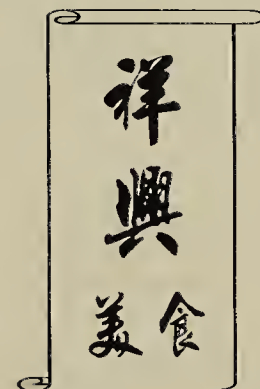 祥
興
美食